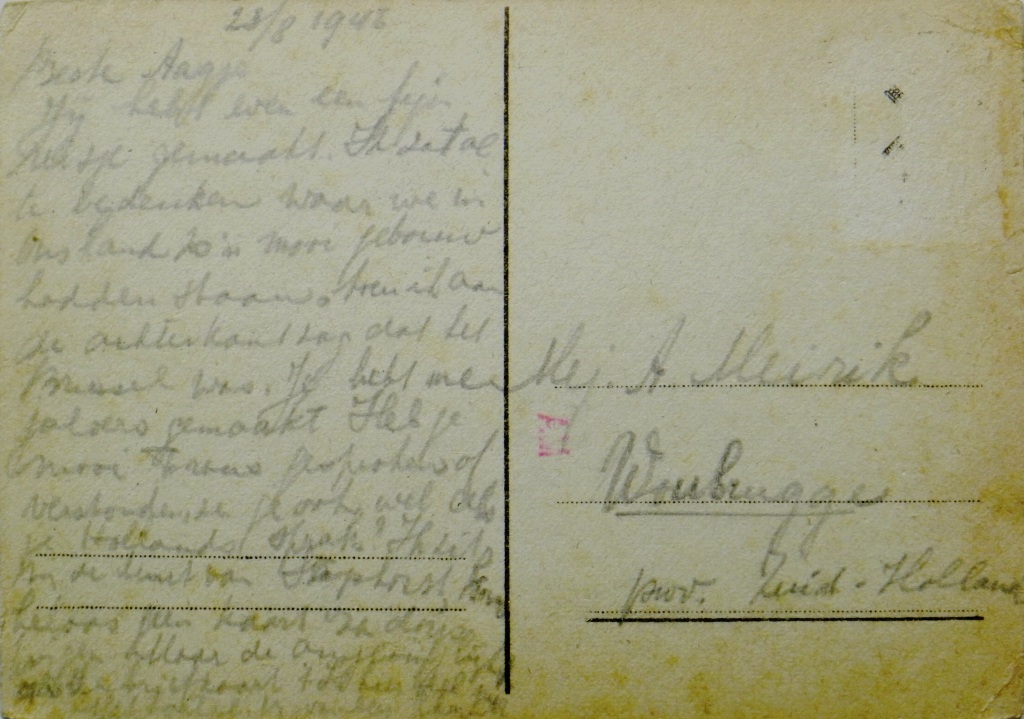 23/8 1948
Beste Aagje
Jij hebt even een fijn
reisje gemaakt. Ik zat al
te bedenken waar we in
ons land zo'n mooi gebouw
hadden staan, toen ik aan
de achterkant zag dat het
Brussel was. Je hebt me
jaloers gemaakt Heb je
mooi Frans gesproken of
verstonden ze je ook wel als
je Hollands sprak? Ik zit
in de buurt van Staphorst
helaas geen kaart
maar de
briefkaart
Mej. A Meirik
Woubrugge
prov. Zuid-Holland